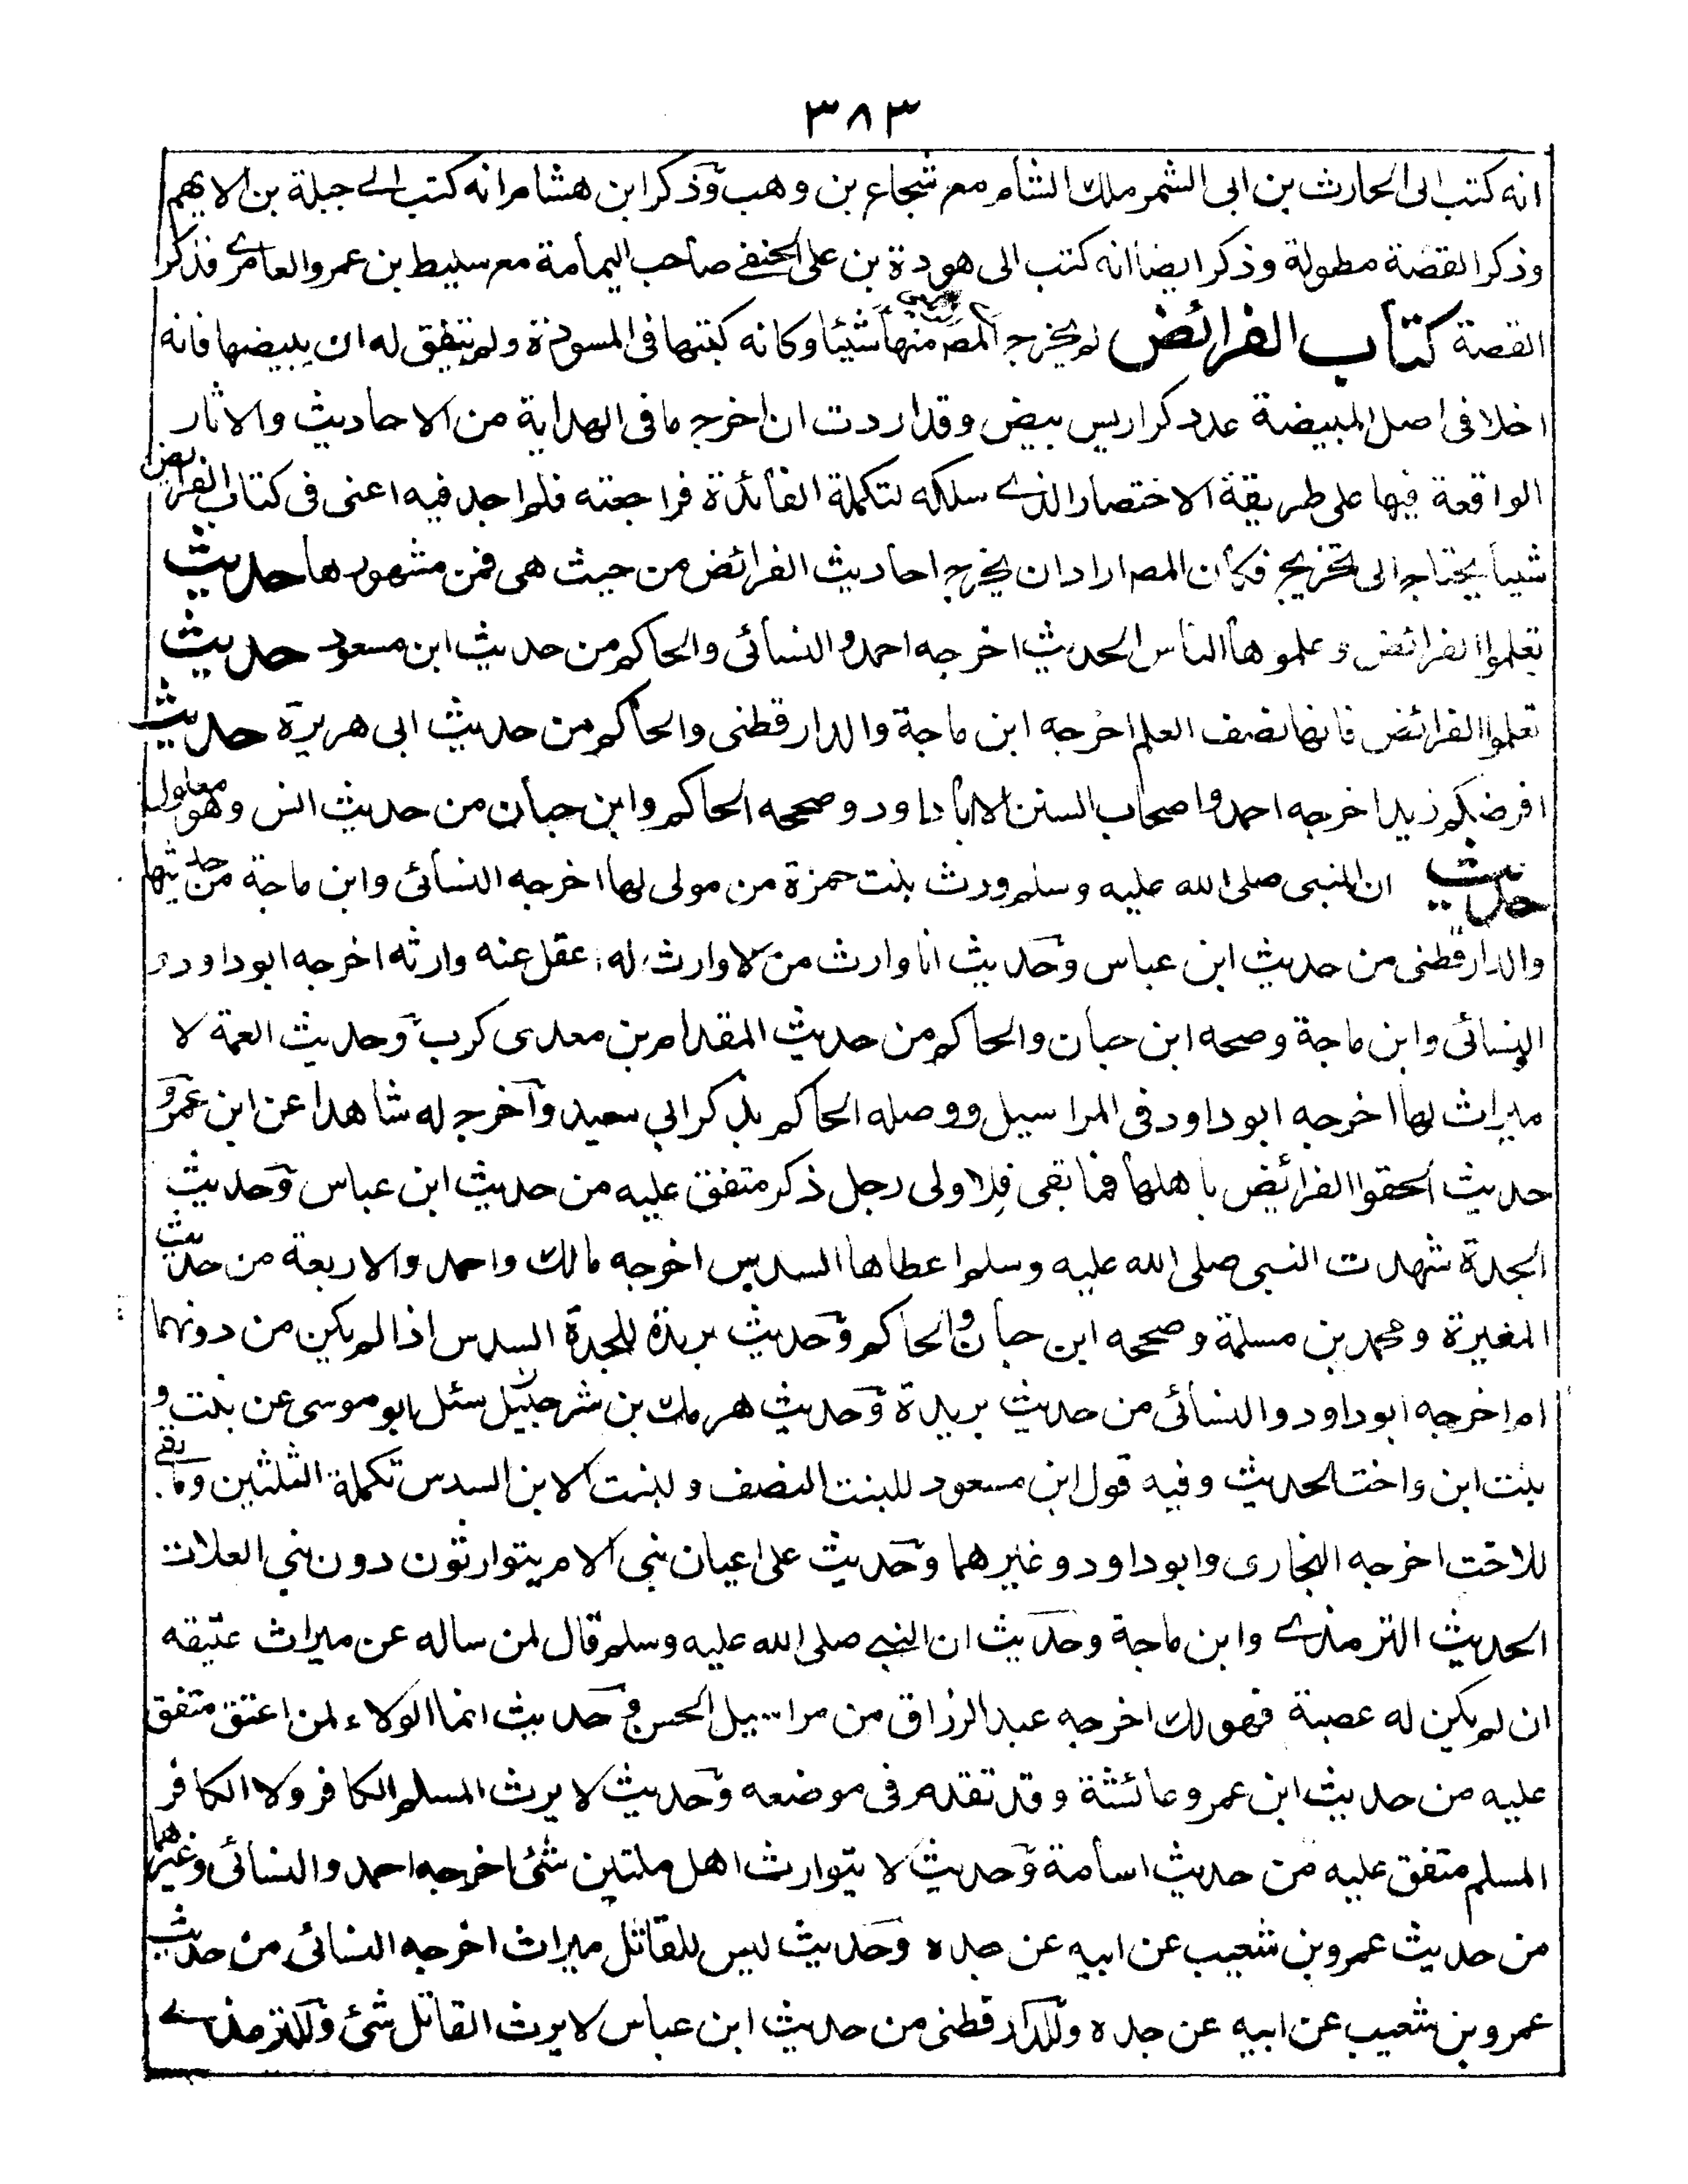 ٣٨٣
انه كتب الى الحارث بن ابى الشمر ملك الشام مع شجاع بن وهب وذكر ابن هشام انه كتب الے جبلة بن الايهم
وذكر القصة مطولة وذكر ايضا انه كتب الى هوذة بن على الحنفے صاحب اليمامة مع سليط بن عمرو العامرے فذكر
القصة كتاب الفرائض لم يخرج المص منها شيئا وكانه كتبها فى المسودة ولم يتفق له ان يبيضها فانه
اخلا فى اصل المبيضة عدد كراريس بيض وقد اردت ان اخرج ما فى الهداية من الاحاديث والاثار
الواقعة فيها على طريقة الاختصار الذے سلكه لتكملة الفائدة فراجعته فلم اجد فيه اعنى فى كتاب الفرائض
شيئا يحتاج الى تخريج فكأن المص اراد ان يخرج احاديث الفرائض من حيث هى فمن مشهورها حديث
تعلموا الفرائض وعلموها الناس الحديث اخرجه احمد والنسائى والحاكم من حديث ابن مسعود حديث
تعلموا الفرائض فانها نصف العلم اخرجه ابن ماجة والدارقطنى والحاكم من حديث ابى هريرة حديث
افرضكم زيد اخرجه احمد واصحاب السنن الا ابا داود وصححه الحاكم وابن حبان من حديث انس وهو معلول
حديث ان النبى صلى الله عليه وسلم ورث بنت حمزة من مولى لها اخرجه النسائى وابن ماجة من حديثها
والدارقطنى من حديث ابن عباس وحديث انا وارث من لا وارث له اعقل عنه وارثه اخرجه ابو داود و
النسائى وابن ماجة وصحه ابن حبان والحاكم من حديث المقدام بن معدى كرب وحديث العمة لا
ميراث لها اخرجه ابو داود فى المراسيل ووصله الحاكم بذكر ابي سعيد وآخرج له شاهدا عن ابن عمر و
حديث الحقوا الفرائض باهلها فما بقى فلاولى رجل ذكر متفق عليه من حديث ابن عباس وحديث
الجدة شهدت النبى صلى الله عليه وسلم اعطاها السدس اخرجه مالك واحمد والاربعة من حديث
المغيرة ومحمد بن مسلمة وصححه ابن حبان والحاكم وحديث بريدة للجدة السدس اذا لم يكن من دونهما
ام اخرجه ابو داود والنسائى من حديث بريدة وحديث هرمك بن شرحبيل سئل ابو موسى عن بنت و
بنت ابن واخت الحديث وفيه قول ابن مسعود للبنت النصف ولبنت الابن السدس تكملة الثلثين وما بقے
للاخت اخرجه البخارى وابو داود وغيرهما وحديث على اعيان بنى الام يتوارثون دون بني العلات
الحديث الترمذے وابن ماجة وحديث ان النبے صلى الله عليه وسلم قال لمن ساله عن ميراث عتيقه
ان لم يكن له عصبة فهو لك اخرجه عبد الرزاق من مراسيل الحسن وحديث انما الولاء لمن اعتق متفق
عليه من حديث ابن عمر وعائشة وقد تقدم فى موضعه وحديث لا يرث المسلم الكافر ولا الكافر
المسلم متفق عليه من حديث اسامة وحديث لا يتوارث اهل ملتين شئ اخرجه احمد والنسائى وغيرهما
من حديث عمرو بن شعيب عن ابيه عن جده وحديث ليس للقاتل ميراث اخرجه النسائى من حديث
عمرو بن شعيب عن ابيه عن جده وللدارقطنى من حديث ابن عباس لا يرث القاتل شئ وللترمذے